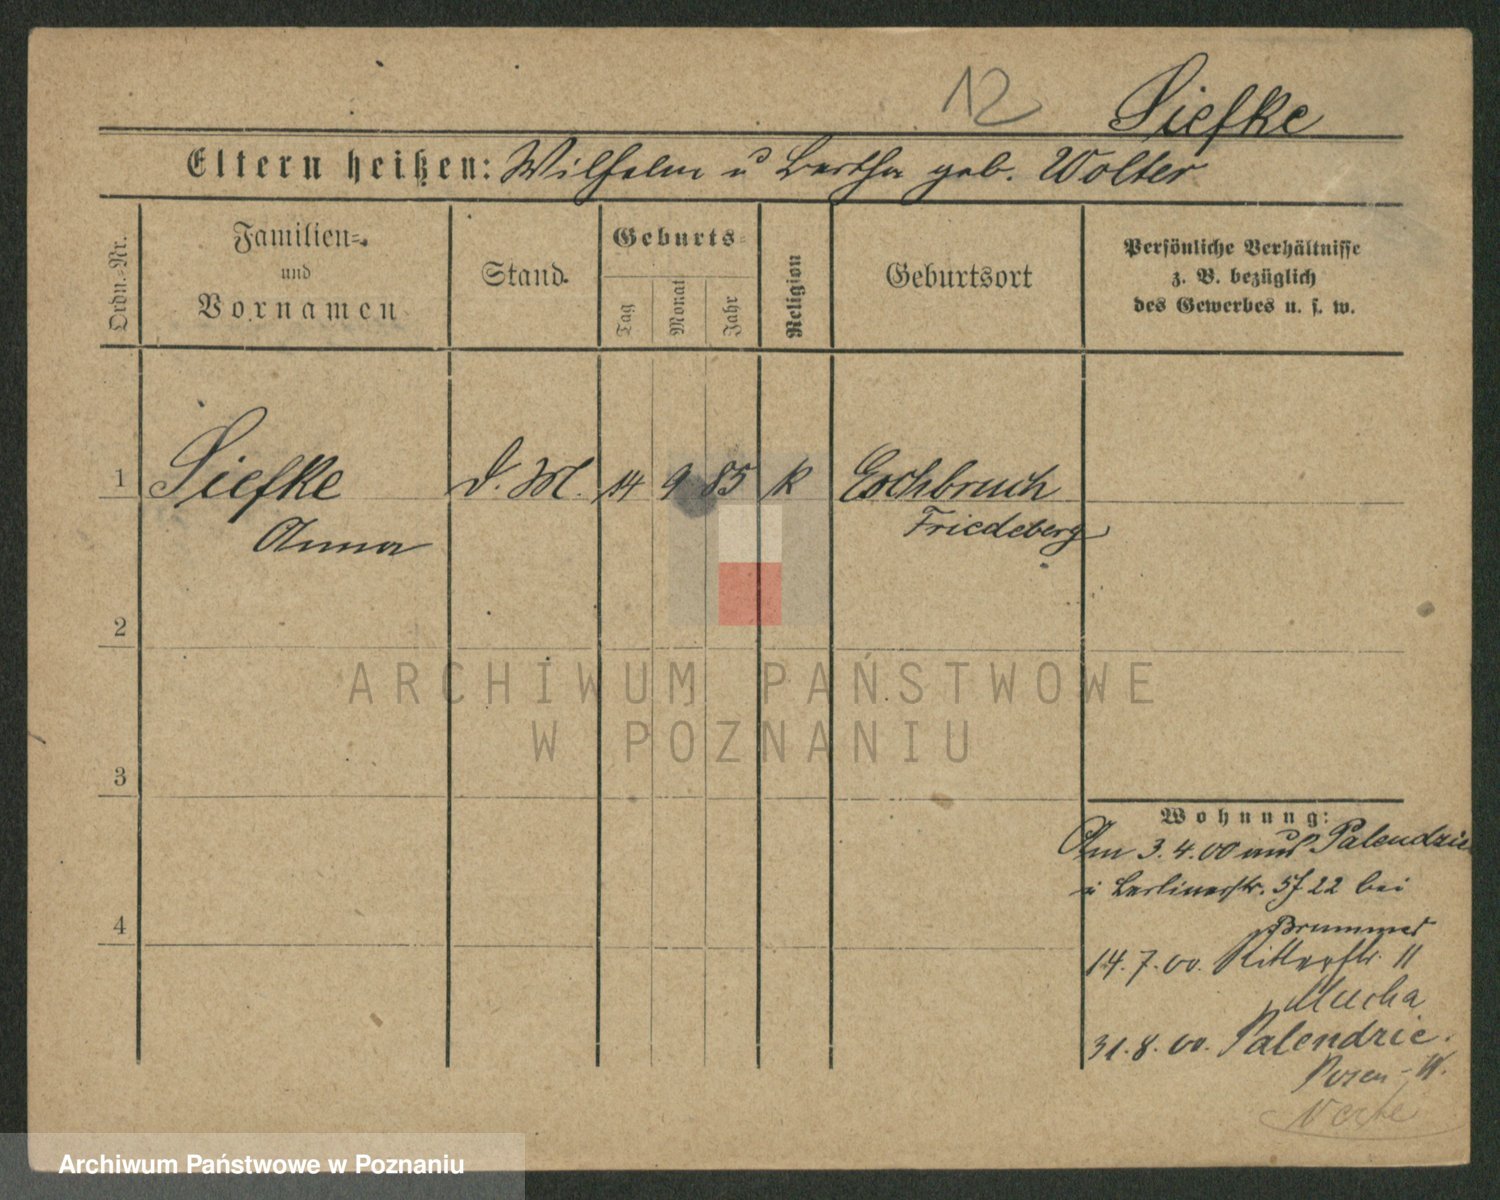 12 Siefke
Eltern heißen: Wilhelm u Bertha geb. Wolter
Ordn.-Nr.
Familien-
und
Vornamen
Stand.
Geburts-
Tag
Monat
Jahr
Religion
Geburtsort
Persönliche Verhältnisse
z. B. bezüglich
des Gewerbes u. s. w.
1 Siefke D. M. 14 9 85 k Eschbruch
Anna Friedeberg
2
ARCHIWUM PAŃSTWOWE
W POZNANIU
3
Wohnung:
Am 3.4.00 aus Palendzie
Berlinerstr. 5 22 bei
4
Brummer
14.7.00. Ritterstr. 11
Mucha
31.8.00. Palendzie.
Posen-W.
Archiwum Państwowe w Poznaniu